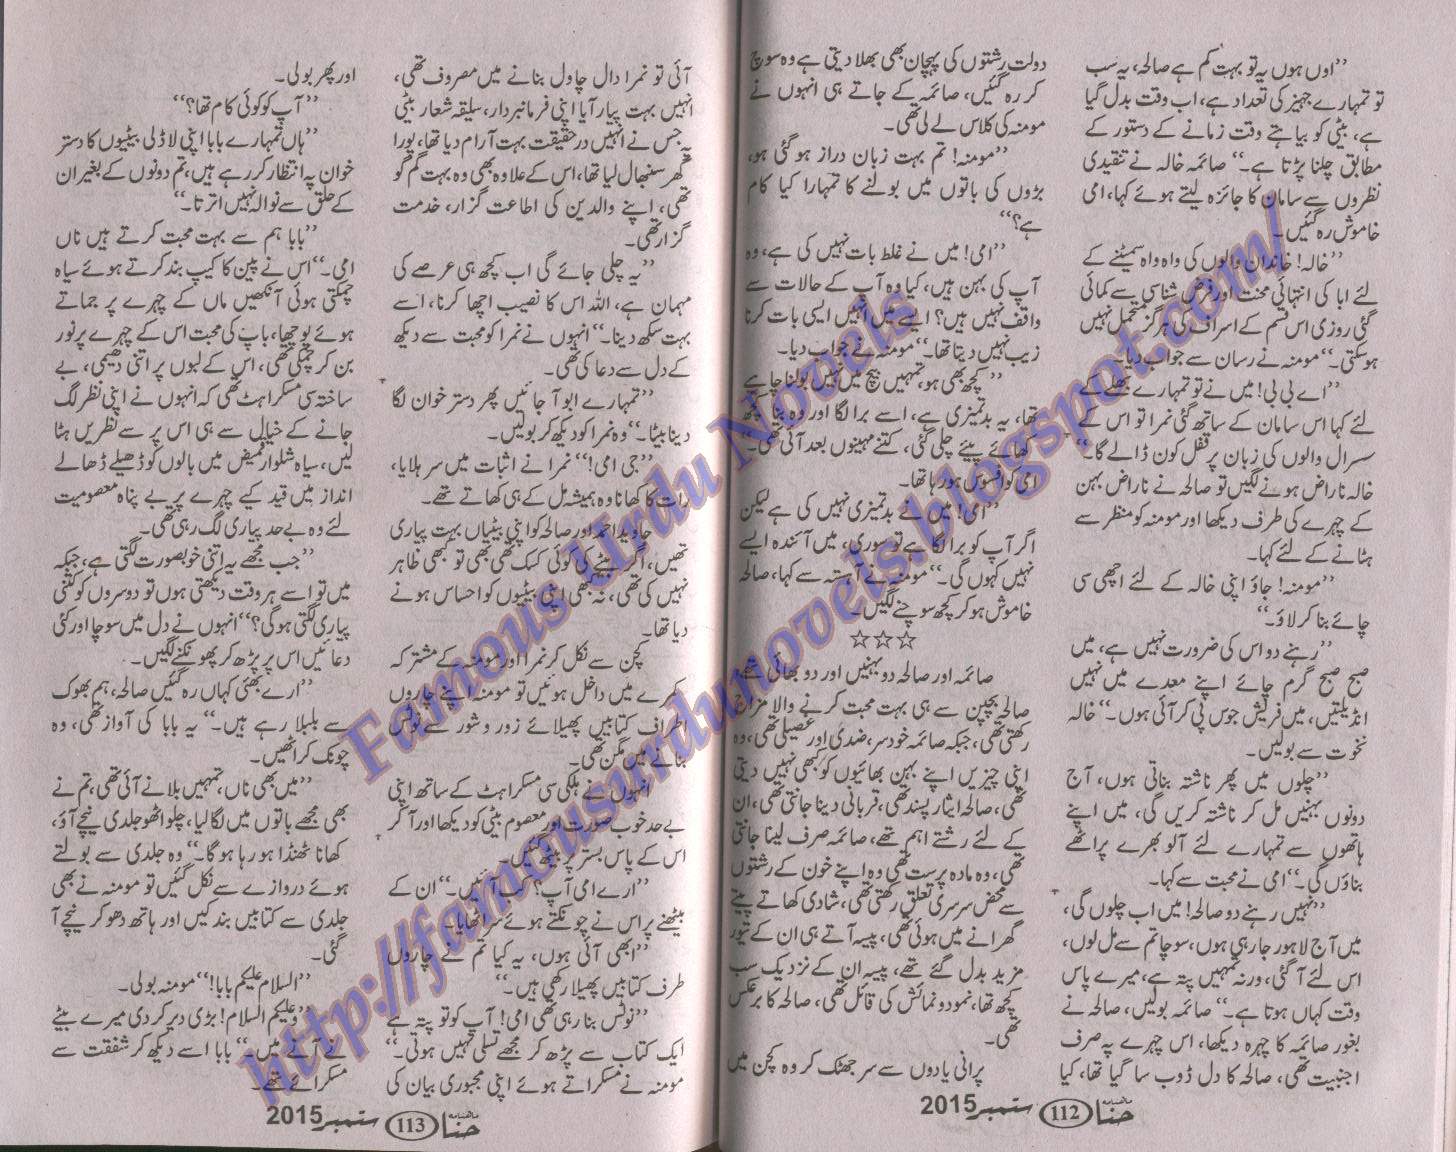 ’’اوں ہوں یہ تو بہت کم ہے صالحہ، یہ سب
تو تمہارے جہیز کی تعداد ہے، اب وقت بدل گیا
ہے، بیٹی کو بیاہتے وقت زمانے کے دستور کے
مطابق چلنا پڑتا ہے۔‘‘ صائمہ خالہ نے تنقیدی
نظروں سے سامان کا جائزہ لیتے ہوئے کہا، امی
خاموش رہ گئیں۔
’’خالہ! خاندان والوں کی واہ واہ سمیٹنے کے
لئے ابا کی انتہائی محنت اور فرض شناسی سے کمائی
گئی روزی اس قسم کے اسراف کی ہرگز متحمل نہیں
ہو سکتی۔‘‘ مومنہ نے رسان سے جواب دیا۔
’’اے بی بی! میں نے تو تمہارے بھلے کے
لئے کہا اس سامان کے ساتھ گئی نمرا تو اس کے
سسرال والوں کی زبان پر قفل کون ڈالے گا۔‘‘
خالہ ناراض ہونے لگیں تو صالحہ نے ناراض بہن
کے چہرے کی طرف دیکھا اور مومنہ کو منظر سے
ہٹانے کے لئے کہا۔
’’مومنہ! جاؤ اپنی خالہ کے لئے اچھی سی
چائے بنا کر لاؤ۔‘‘
’’رہنے دو اس کی ضرورت نہیں ہے، میں
صبح صبح گرم چائے اپنے معدے میں نہیں
انڈیلتیں، میں فریش جوس پی کر آئی ہوں۔‘‘ خالہ
نخوت سے بولیں۔
’’چلوں میں پھر ناشتہ بناتی ہوں، آج
دونوں بہنیں مل کر ناشتہ کریں گی، میں اپنے
ہاتھوں سے تمہارے لئے آلو بھرے پراٹھے
بناؤں گی۔‘‘ امی نے محبت سے کہا۔
’’نہیں رہنے دو صالحہ! میں اب چلوں گی،
میں آج لاہور جا رہی ہوں، سوچا تم سے مل لوں،
اس لئے آ گئی، ورنہ تمہیں پتہ ہے، میرے پاس
وقت کہاں ہوتا ہے۔‘‘ صائمہ بولیں، صالحہ نے
بغور صائمہ کا چہرہ دیکھا، اس چہرے پہ صرف
اجنبیت تھی، صالحہ کا دل ڈوب سا گیا تھا، کیا
دولت رشتوں کی پہچان بھی بھلا دیتی ہے وہ سوچ
کر رہ گئیں، صائمہ کے جاتے ہی انہوں نے
مومنہ کی کلاس لے لی تھی۔
’’مومنہ! تم بہت زبان دراز ہو گئی ہو،
بڑوں کی باتوں میں بولنے کا تمہارا کیا کام
ہے؟‘‘
’’امی! میں نے غلط بات نہیں کی ہے، وہ
آپ کی بہن ہیں، کیا وہ آپ کے حالات سے
واقف نہیں ہیں؟ ایسے میں انہیں ایسی بات کرنا
زیب نہیں دیتا تھا۔‘‘ مومنہ نے جواب دیا۔
’’کچھ بھی ہو، تمہیں بیچ میں نہیں بولنا چاہے
تھا، یہ بدتمیزی ہے، اسے برا لگا اور وہ بنا کچھ
کھائے پیئے چلی گئی، کتنے مہینوں بعد آئی تھی۔‘‘
امی کو افسوس ہو رہا تھا۔
’’امی! میں نے بدتمیزی نہیں کی ہے لیکن
اگر آپ کو برا لگا ہے تو سوری، میں آئندہ ایسے
نہیں کہوں گی۔‘‘ مومنہ نے آہستہ سے کہا، صالحہ
خاموش ہو کر کچھ سوچنے لگیں۔
☆☆☆
صائمہ اور صالحہ دو بہنیں اور دو بھائی تھے،
صالحہ بچپن سے ہی بہت محبت کرنے والا مزاج
رکھتی تھی، جبکہ صائمہ خود سر، ضدی اور غصیلی تھی، وہ
اپنی چیزیں اپنے بہن بھائیوں کو کبھی نہیں دیتی
تھی، صالحہ ایثار پسند تھی، قربانی دینا جانتی تھی، ان
کے لئے رشتے اہم تھے، صائمہ صرف لینا جانتی
تھی، وہ مادہ پرست تھی وہ اپنے خون کے رشتوں
سے محض سرسری تعلق رکھتی تھی، شادی کھاتے پیتے
گھرانے میں ہوئی تھی، پیسہ آتے ہی ان کے تیور
مزید بدل گئے تھے، پیسہ ان کے نزدیک سب
کچھ تھا، نمود و نمائش کی قائل تھی، صالحہ کا برعکس
تھی۔
پرانی یادوں سے سر جھٹک کر وہ کچن میں
ماہنامہ حنا 112 ستمبر 2015
آئی تو نمرا دال چاول بنانے میں مصروف تھی،
انہیں بہت پیار آیا اپنی فرمانبردار، سلیقہ شعار بیٹی
پہ جس نے انہیں درحقیقت بہت آرام دیا تھا، پورا
گھر سنبھال لیا تھا، اس کے علاوہ بھی وہ بہت کم گو
تھی، اپنے والدین کی اطاعت گزار، خدمت
گزار تھی۔
’’یہ چلی جائے گی اب کچھ ہی عرصے کی
مہمان ہے، اللہ اس کا نصیب اچھا کرنا، اسے
بہت سکھ دینا۔‘‘ انہوں نے نمرا کو محبت سے دیکھ
کے دل سے دعا کی تھی۔
’’تمہارے ابو آ جائیں پھر دستر خوان لگا
دینا بیٹا۔‘‘ وہ نمرا کو دیکھ کر بولیں۔
’’جی امی!‘‘ نمرا نے اثبات میں سر ہلایا،
رات کا کھانا وہ ہمیشہ مل کے ہی کھاتے تھے۔
جاوید احمد اور صالحہ کو اپنی بیٹیاں بہت پیاری
تھیں، اگر بیٹے کی کوئی کسک تھی بھی تو کبھی ظاہر
نہیں کی تھی، نہ کبھی اپنی بیٹیوں کو احساس ہونے
دیا تھا۔
کچن سے نکل کر نمرا اور مومنہ کے مشترکہ
کمرے میں داخل ہوئیں تو مومنہ اپنے چاروں
اطراف کتابیں پھیلائے زور و شور سے نوٹس
بنانے میں مگن تھی۔
انہوں نے ہلکی سی مسکراہٹ کے ساتھ اپنی
بے حد خوب صورت اور معصوم بیٹی کو دیکھا اور آ کر
اس کے پاس بستر پر بیٹھ گئیں۔
’’ارے امی آپ؟ کب آئیں۔‘‘ ان کے
بیٹھنے پر اس نے چونکتے ہوئے سر اٹھایا۔
’’ابھی آئی ہوں، یہ کیا تم نے چاروں
طرف کتابیں پھیلا رکھی ہیں۔‘‘
’’نوٹس بنا رہی تھی امی! آپ کو تو پتہ ہے
ایک کتاب سے پڑھ کر مجھے تسلی نہیں ہوتی۔‘‘
مومنہ نے مسکراتے ہوئے اپنی مجبوری بیان کی
اور پھر بولی۔
’’آپ کو کوئی کام تھا؟‘‘
’’ہاں تمہارے بابا اپنی لاڈلی بیٹیوں کا دستر
خوان پہ انتظار کر رہے ہیں، تم دونوں کے بغیر ان
کے حلق سے نوالہ نہیں اترتا۔‘‘
’’بابا ہم سے بہت محبت کرتے ہیں ناں
امی۔‘‘ اس نے پین کا کیپ بند کرتے ہوئے سیاہ
چمکتی ہوئی آنکھیں ماں کے چہرے پر جماتے
ہوئے پوچھا، باپ کی محبت اس کے چہرے پر نور
بن کر چمکی تھی، اس کے لبوں پر اتنی دھیمی، بے
ساختہ سی مسکراہٹ تھی کہ انہوں نے اپنی نظر لگ
جانے کے خیال سے ہی اس پر سے نظریں ہٹا
لیں، سیاہ شلوار قمیض میں بالوں کو ڈھیلے ڈھالے
انداز میں قید کیے چہرے پر بے پناہ معصومیت
لئے وہ بے حد پیاری لگ رہی تھی۔
’’جب مجھے یہ اتنی خوبصورت لگتی ہے، جبکہ
میں تو اسے ہر وقت دیکھتی ہوں تو دوسروں کو کتنی
پیاری لگتی ہو گی؟‘‘ انہوں نے دل میں سوچا اور کئی
دعائیں اس پر پڑھ کر پھونکنے لگیں۔
’’ارے بھئی کہاں رہ گئیں صالحہ، ہم بھوک
سے بلبلا رہے ہیں۔‘‘ یہ بابا کی آواز تھی، وہ
چونک کر اٹھیں۔
’’میں بھی ناں، تمہیں بلانے آئی تھی، تم نے
بھی مجھے باتوں میں لگا لیا، چلو اٹھو جلدی نیچے آؤ،
کھانا ٹھنڈا ہو رہا ہو گا۔‘‘ وہ جلدی سے بولتے
ہوئے دروازے سے نکل گئیں تو مومنہ نے بھی
جلدی سے کتابیں بند کیں اور ہاتھ دھو کر نیچے آ
گئی۔
’’السلام علیکم بابا!‘‘ مومنہ بولی۔
’’وعلیکم السلام! بڑی دیر کر دی میرے بیٹے
نے آنے میں۔‘‘ بابا اسے دیکھ کر شفقت سے
مسکرائے تھے۔
ماہنامہ حنا 113 ستمبر 2015
Famous Urdu Novels
http://famousurdunovels.blogspot.com/